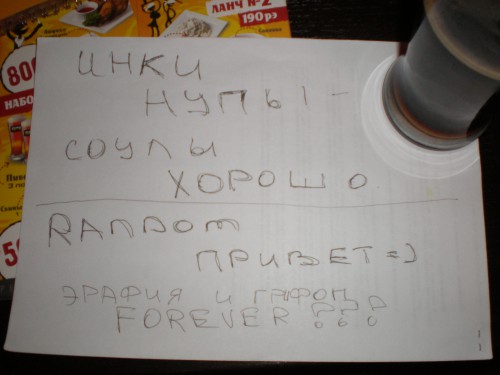 ЛАНЧ №2
190рэ
800
НАБО
Пиво
50
ИНКИ
НУПЫ -
СОУЛЫ
ХОРОШО
RANDOM
ПРИВЕТ =)
ЭРАФИЯ И ГАФОП
FOREVER ???